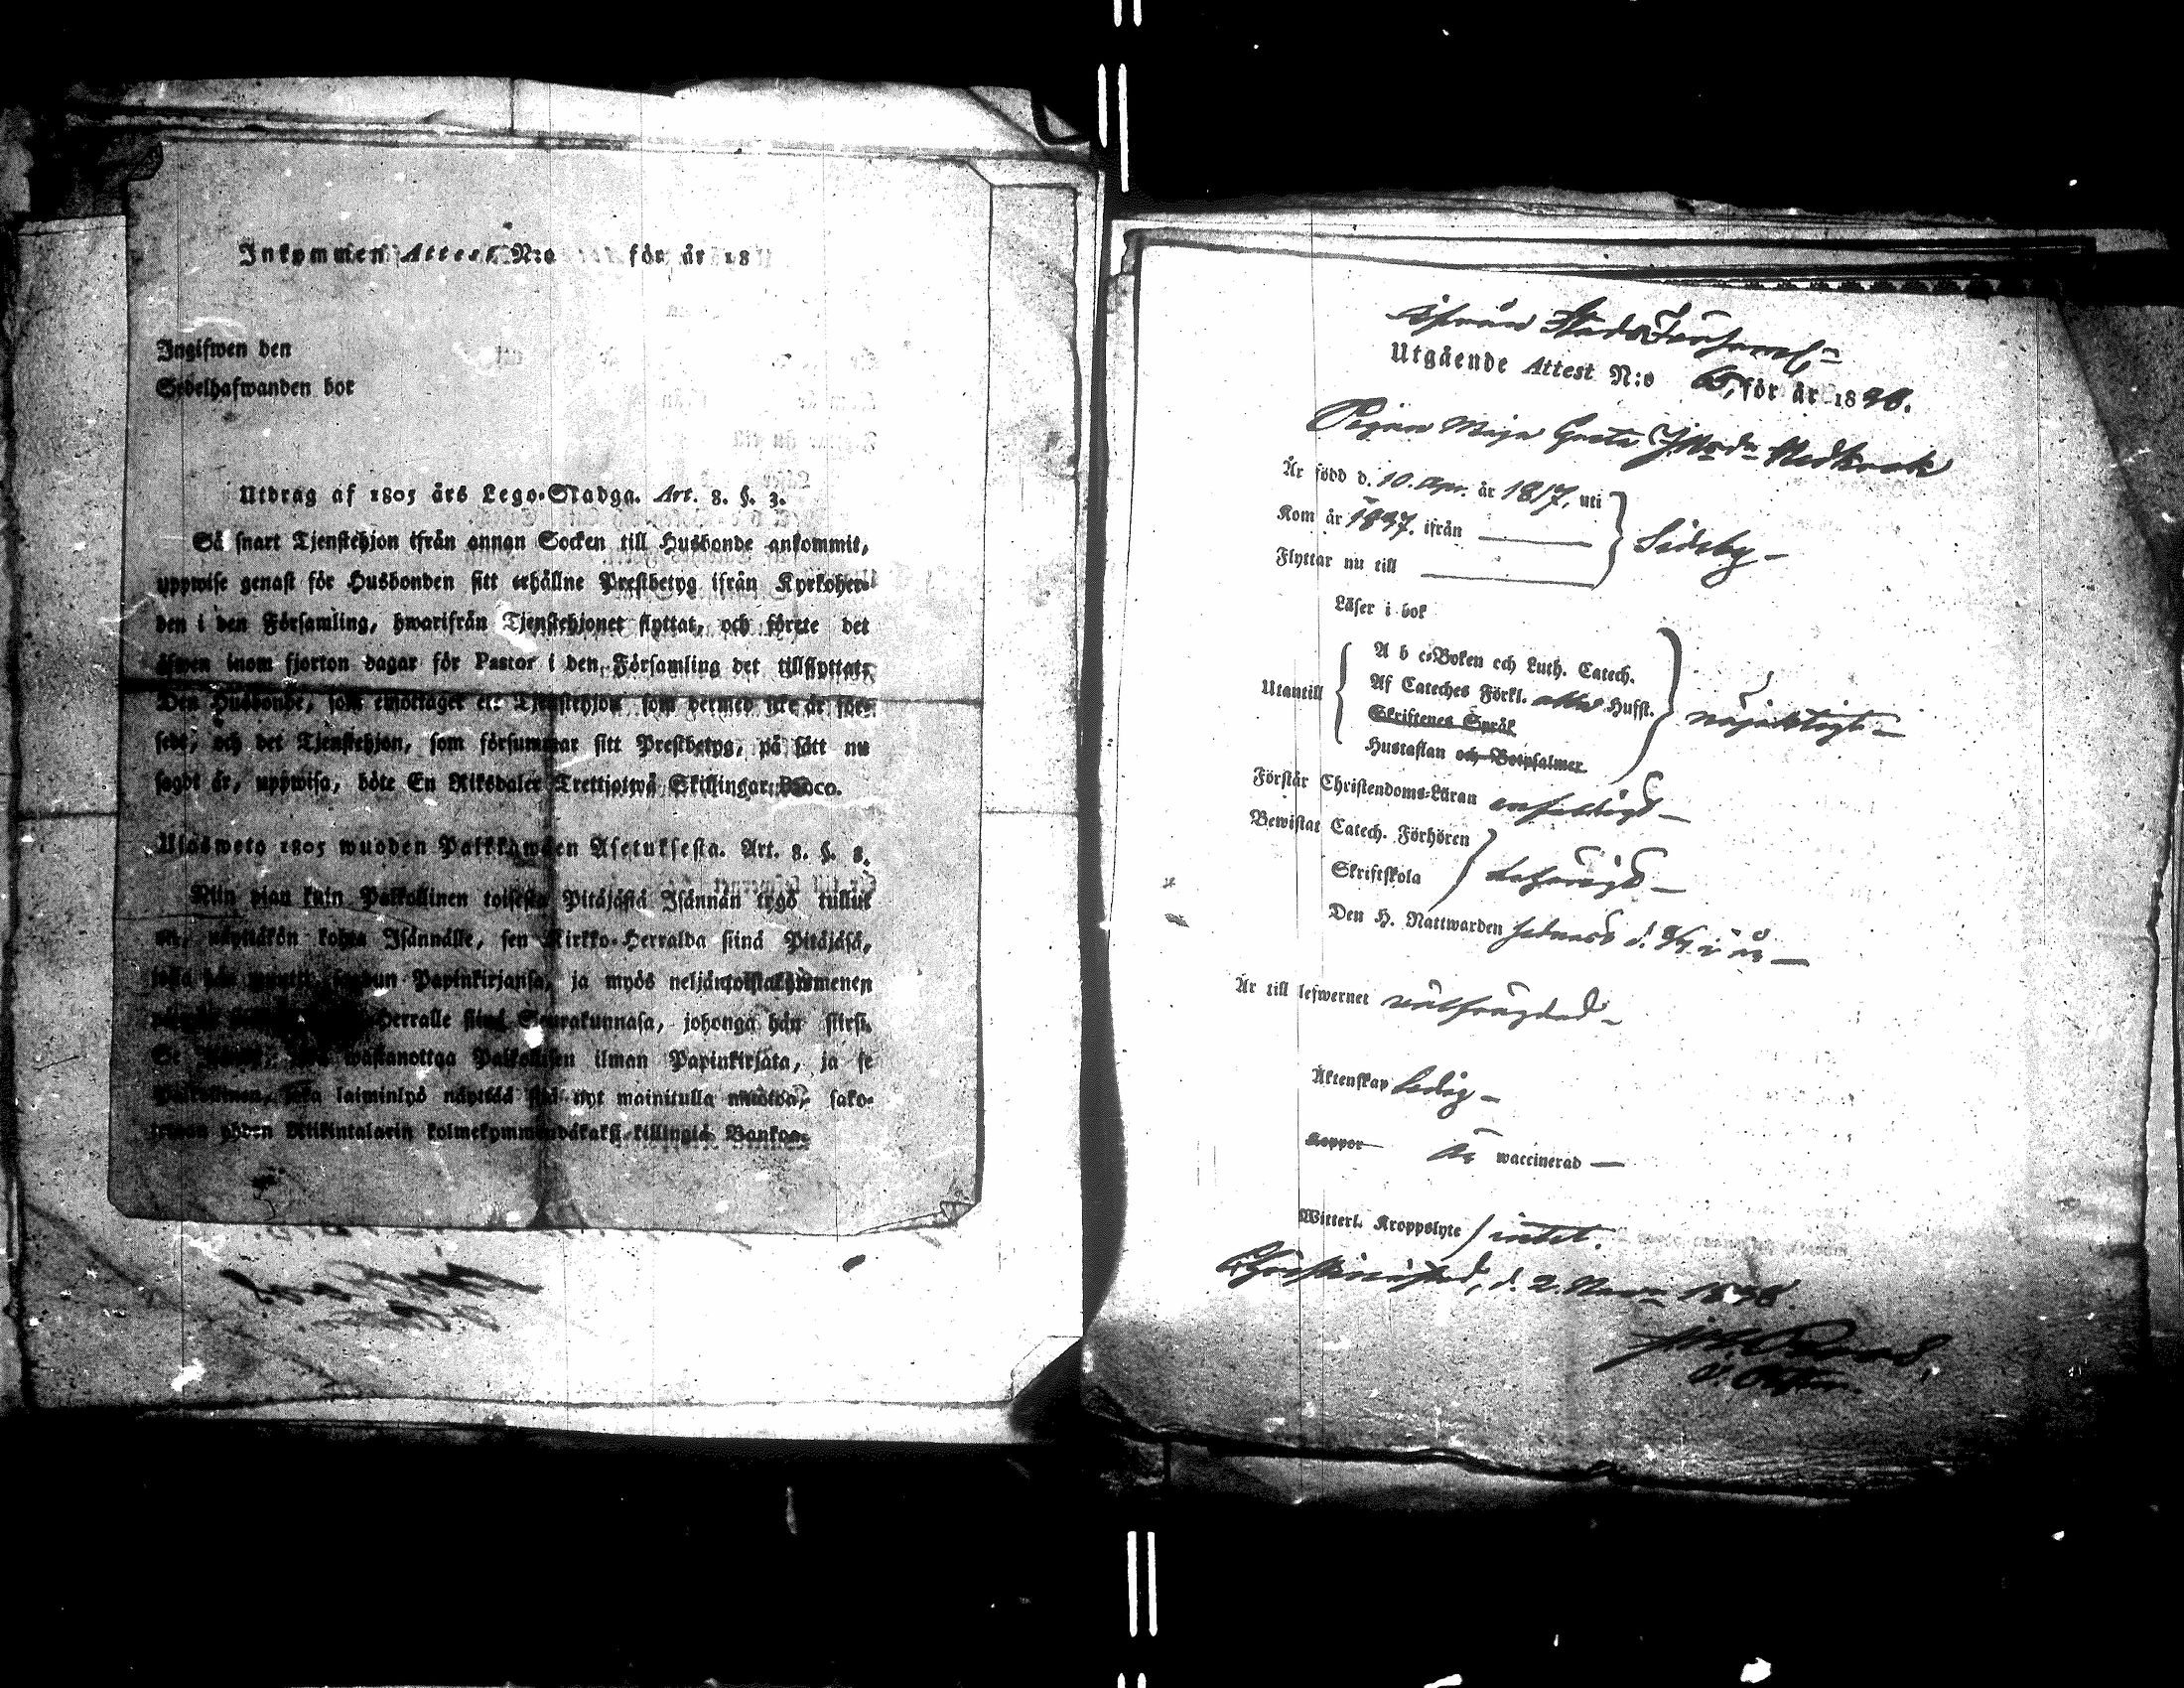 Inkommen Attest N:o för år 18
Ingifwen den
Sedelhafwanden bor
Utdrag af 1805 års Lego-Stadga. Art. 8. §. 3.
Så snart Tjenstehjon ifrån annan Socken till Husbonde ankommit,
uppwise genast för Husbonden sitt erhållne Prestbetyg ifrån Kyrkoher-
den i den Församling, hwarifrån Tjenstehjonet flyttat, och förete det
äfwen inom fjorton dagar för Pastor i den Församling det tillflyttat.
Den Husbonde, som emottager ett Tjenstehjon som dermed icke är för-
sedt, och det Tjenstehjon, som försummar sitt Prestbetyg, på sätt nu
sagdt är, uppwisa, böte En Riksdaler Trettjotwå Skillingar Banco.
Ulosweto 1805 wuoden Palkkawäen Asetuksesta. Art. 8. §. 8.
Niin pian kuin Palkollinen toisesta Pitäjästä Isännän tygö tullut
on, näyttäkön kohta Isännälle, sen Kirkko-Herralda siinä Pitäjäsä,
josta hän muutti, saadun Papinkirjansa, ja myös neljäntoistakymmenen
Herralle siinä Seurakunnasa, johonga hän siirsi.
Se wastanottaa Palkollisen ilman Papinkirjata, ja se
Palkollinen, joka laiminlyö näyttää sitä nyt mainitulla muotoa, sako-
tetaan yhden Riikintalarin kolmekymmendäkaksi killingiä Bankoa.
ifrån
Utgående Attest N:o 65, för år 1838.
Pigan Maja Greta
Är född d. 10. Apr. år 1817, uti
Kom år 1837. ifrån
Flyttar nu till
Sideby
Läser i bok
A b c-Boken och Luth. Catech.
Utantill Af Cateches Förkl. Husst.
Skriftenes Språk
Hustaflan och Botpsalmer
nöjaktigt
Förstår Christendoms-Läran enfaldigt
Bewistat Catech. Förhören
Skriftskola
behörigt
Den H. Nattwarden sednast d.
Är till lefwernet wälfrägdad
Äktenskap ledig
Koppor Är waccinerad
Witterl. Kroppslyte intet.
Christinestad, d. 2. Novr 1838.